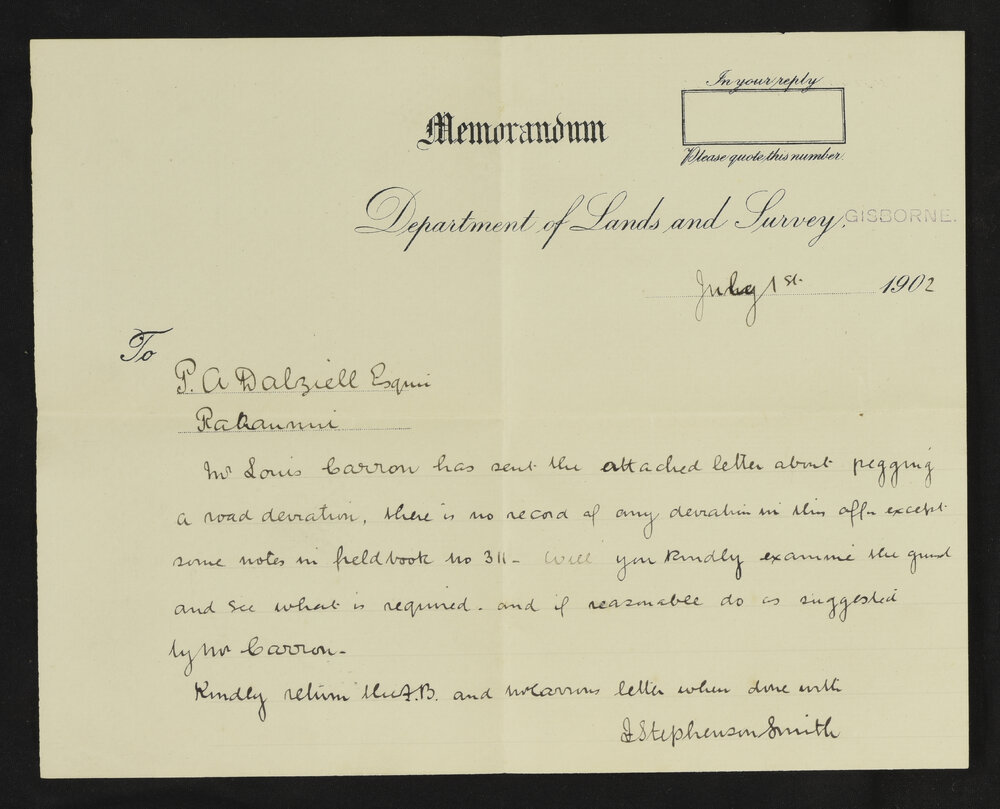 In your reply
Please quote this number.
Memorandum
Department of Lands and Survey, GISBORNE.
July 1st 1902
To
P. A Dalziell Esquire
Rakauroa
Mr Louis Carron has sent the attached letter about pegging
a road deviation, there is no record of any deviation in this office except
some notes in fieldbook no 311 - Will you kindly examine the ground
and see what is required. and if reasonable do as suggested
by Mr Carron -
Kindly return the F.B. and Mr Carrons letter when done with
J Stephenson Smith